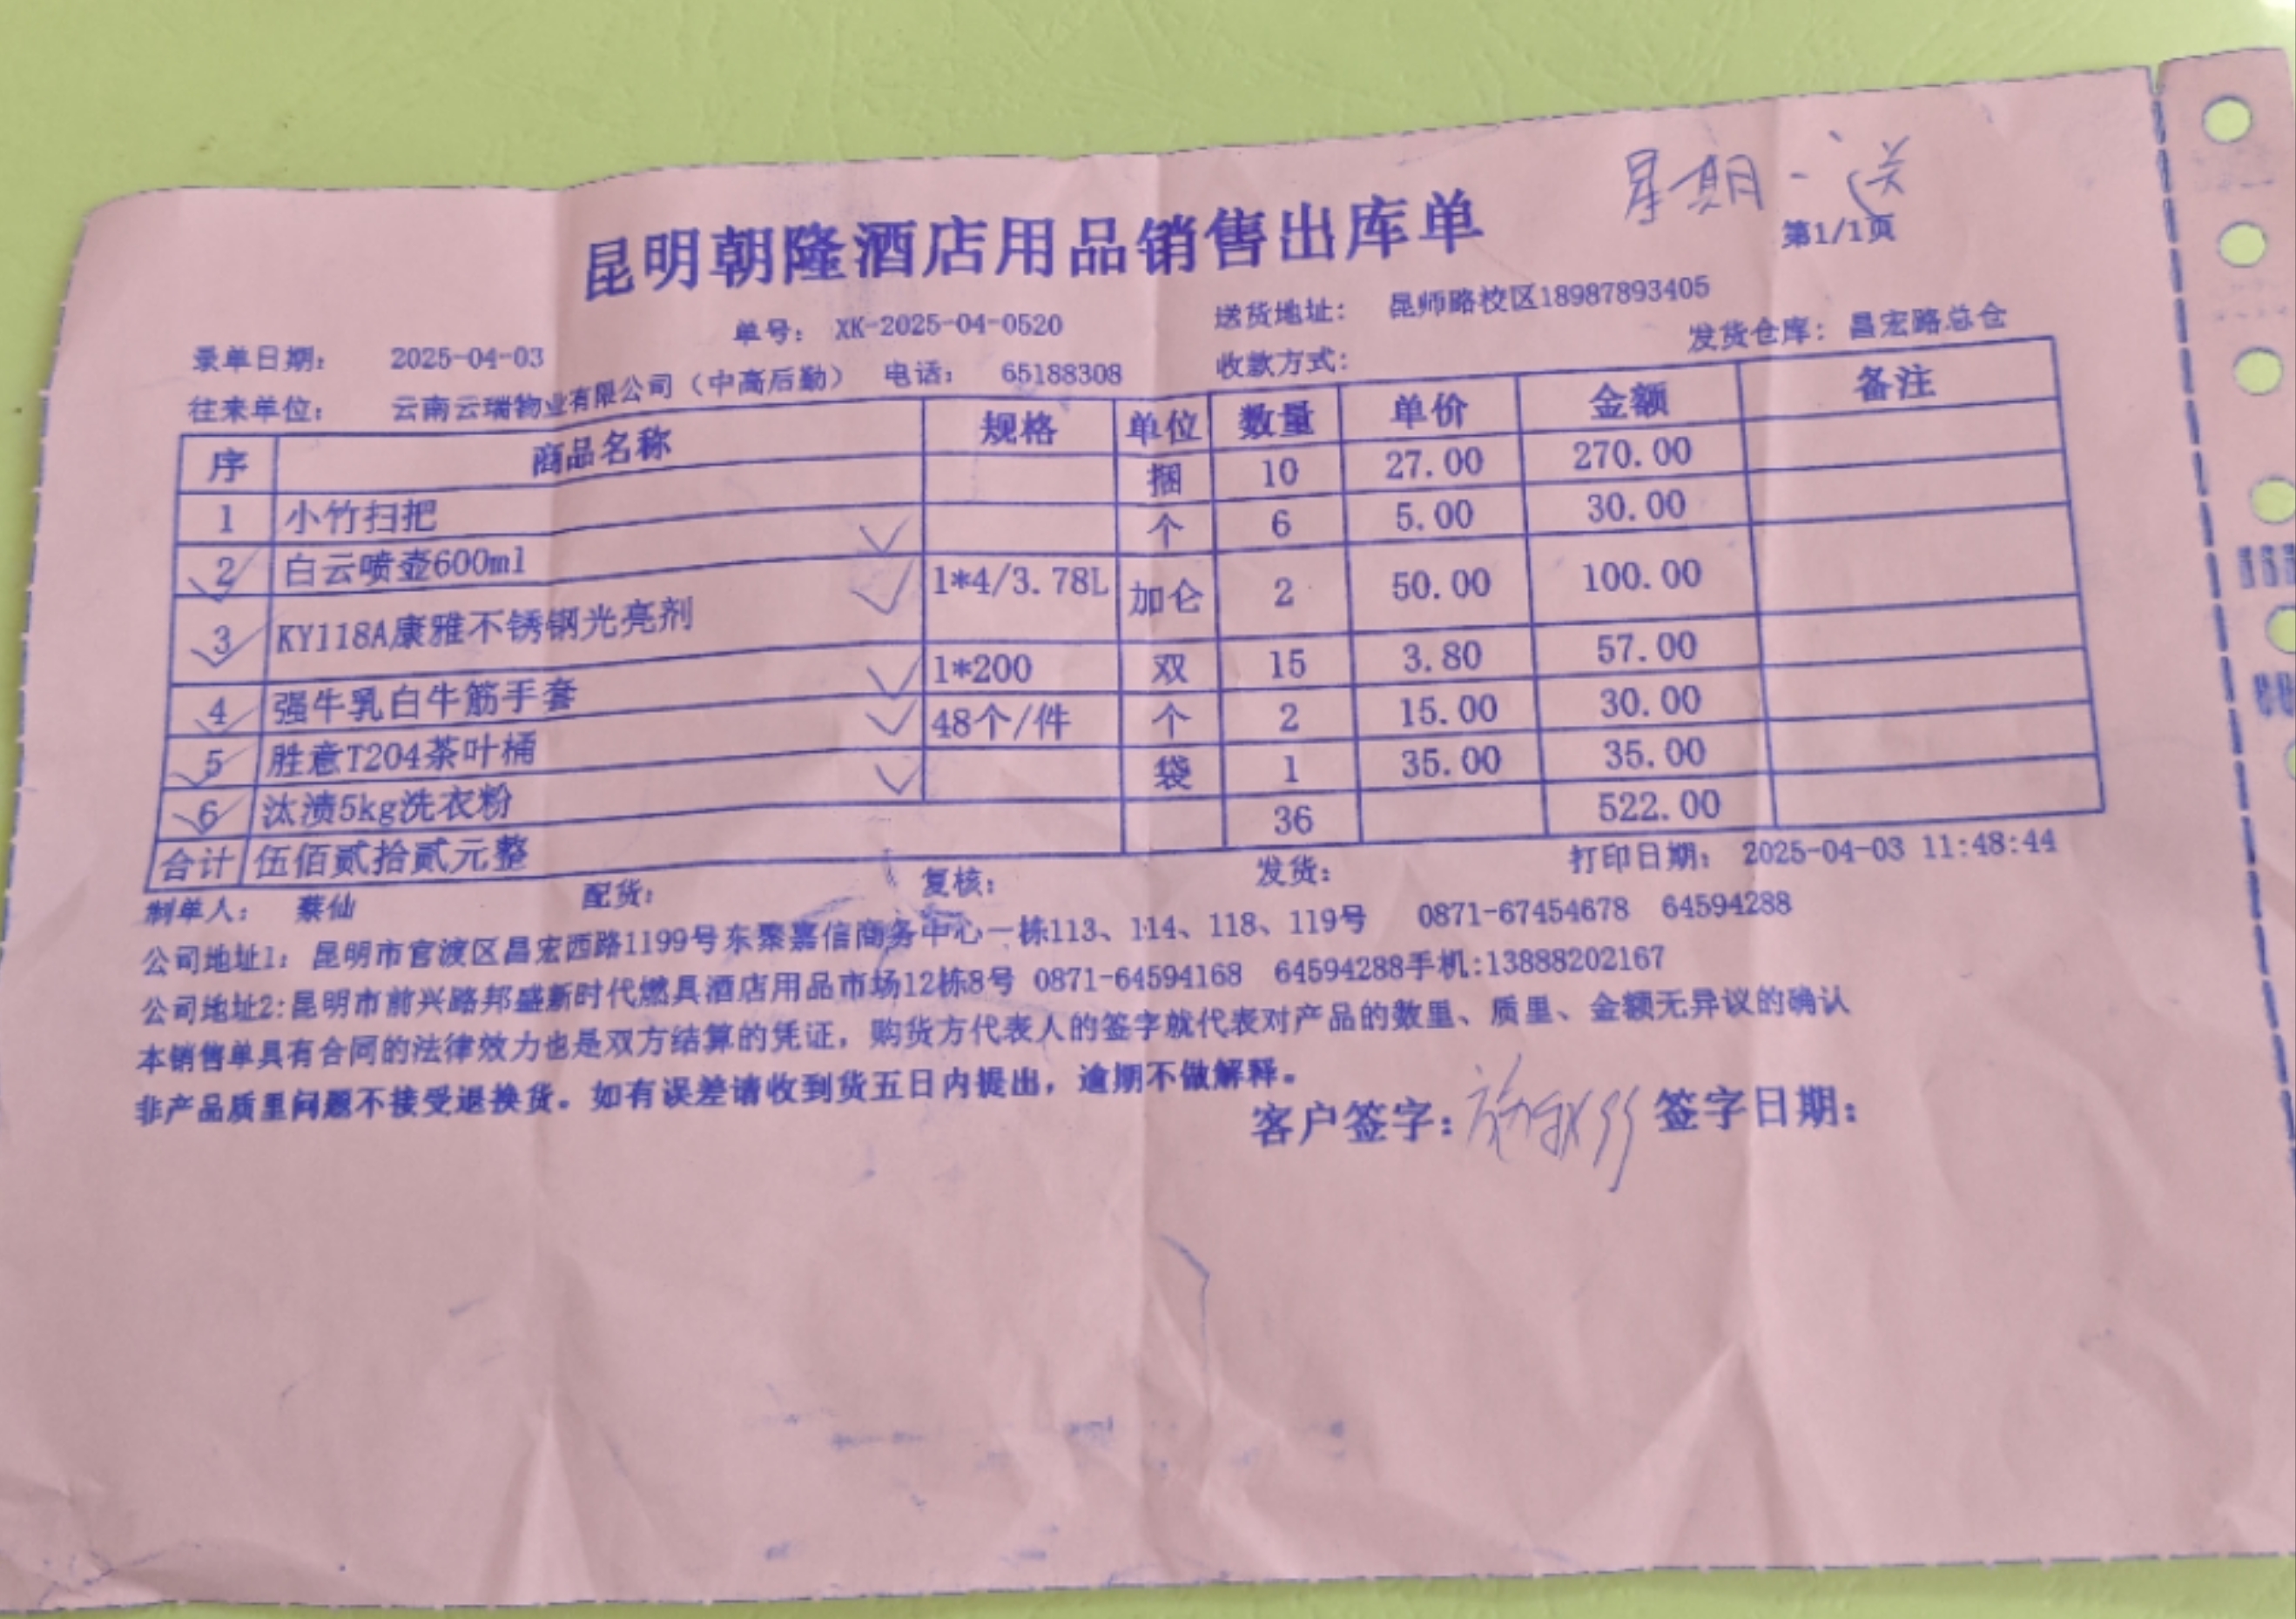 星期一送
昆明朝隆酒店用品销售出库单
第1/1页
录单日期： 2025-04-03 单号： XK-2025-04-0520 送货地址： 昆师路校区18987893405
往来单位： 云南云瑞物业有限公司（中高后勤） 电话： 65188308 收款方式： 发货仓库：昌宏路总仓
序 商品名称 规格 单位 数量 单价 金额 备注
1 小竹扫把 捆 10 27.00 270.00
2 白云喷壶600ml 个 6 5.00 30.00
3 KY118A康雅不锈钢光亮剂 1*4/3.78L 加仑 2 50.00 100.00
4 强牛乳白牛筋手套 1*200 双 15 3.80 57.00
5 胜意T204茶叶桶 48个/件 个 2 15.00 30.00
6 汰渍5kg洗衣粉 袋 1 35.00 35.00
合计 伍佰贰拾贰元整 36 522.00
制单人： 蔡仙 配货： 复核： 发货： 打印日期： 2025-04-03 11:48:44
公司地址1：昆明市官渡区昌宏西路1199号东聚嘉信商务中心一栋113、114、118、119号 0871-67454678 64594288
公司地址2:昆明市前兴路邦盛新时代燃具酒店用品市场12栋8号 0871-64594168 64594288手机:13888202167
本销售单具有合同的法律效力也是双方结算的凭证，购货方代表人的签字就代表对产品的数里、质里、金额无异议的确认
非产品质里问题不接受退换货。如有误差请收到货五日内提出，逾期不做解释。
客户签字： 签字日期：